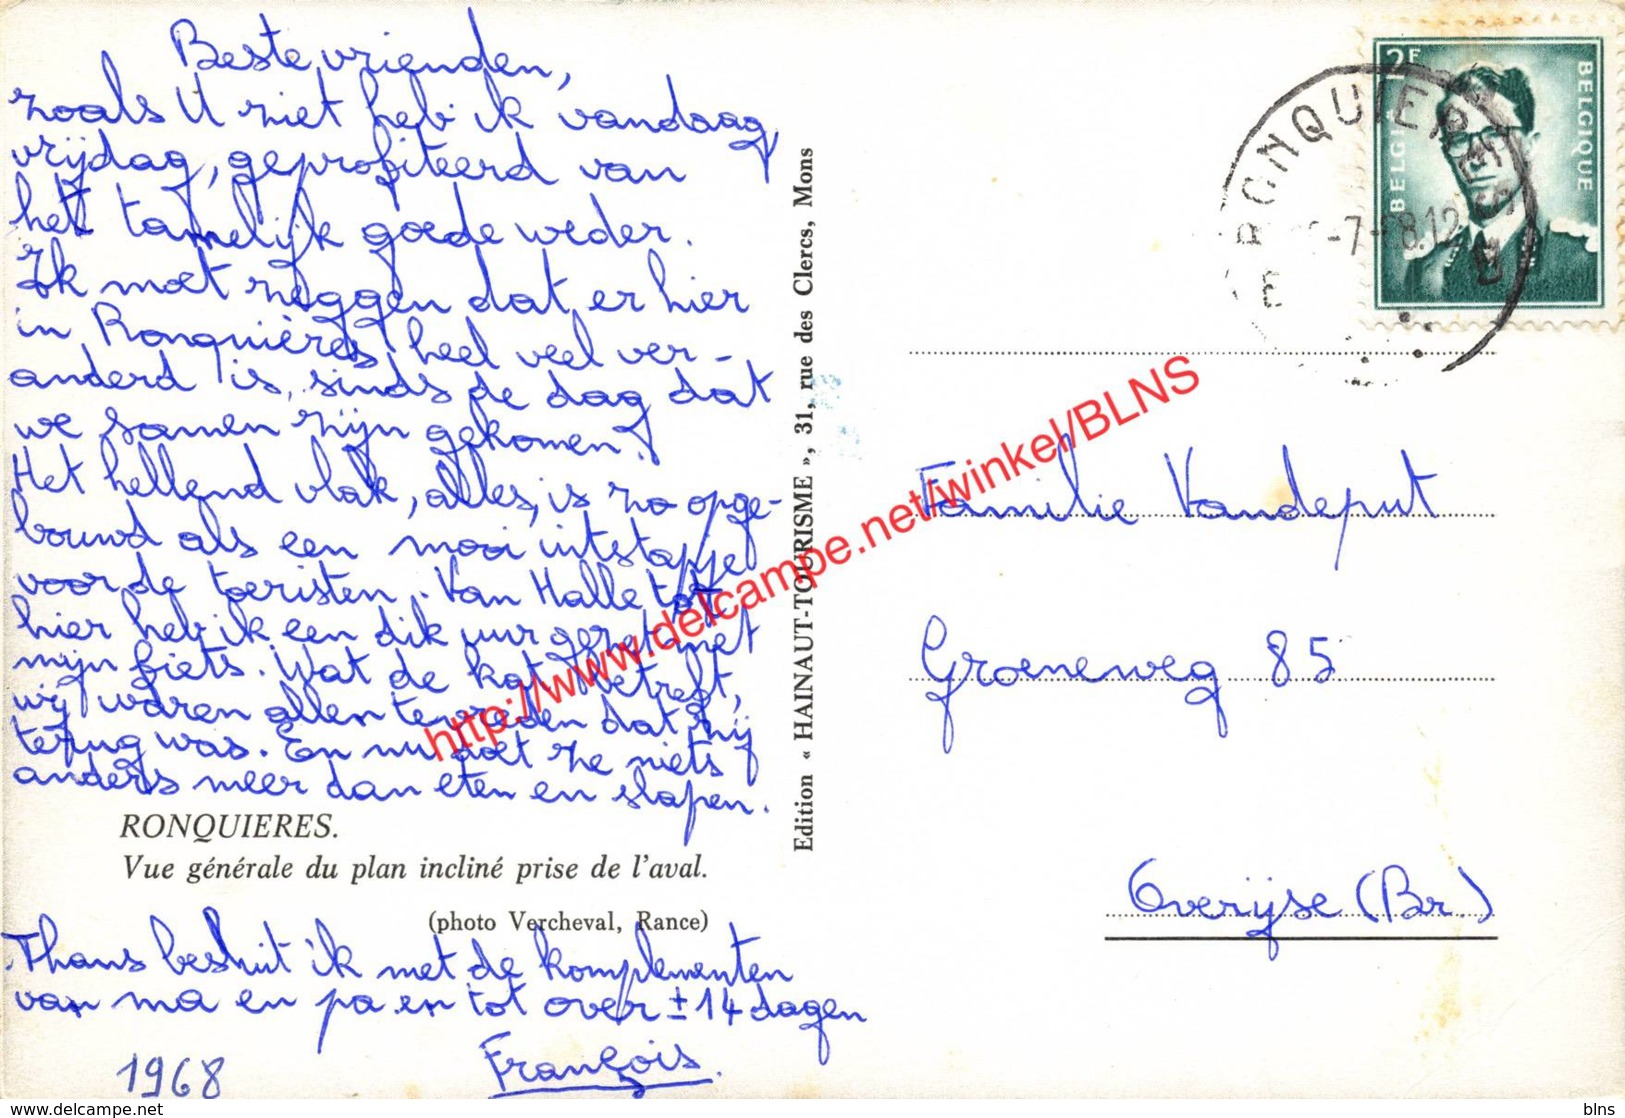 Beste vrienden,
zoals U ziet heb ik vandaag,
vrijdag, geprofiteerd van
het tamelijk goede weder.
Ik moet zeggen dat er hier
in Ronquières heel veel ver-
anderd is, sinds de dag dat
we samen zijn gekomen!
Het hellend vlak, alles, is zo opge-
bouwd als een mooi uitstapje
voor de toeristen. Van Halle tot
hier heb ik een dik uur gereta met
mijn fiets. Wat de kat betreft,
wij waren allen tevreden dat hij
terug was. En nu doet ze niets
anders meer dan eten en slapen.
RONQUIERES.
Vue générale du plan incliné prise de l'aval.
(photo Vercheval, Rance)
Thans besluit ik met de komplementen
van ma en pa en tot over ± 14 dagen
François.
1968
Edition « HAINAUT-TOURISME », 31, rue des Clercs, Mons
2F
BELGIQUE
BELGI
RONQUIERES
-7- 8.12
Familie Vandeput
Groeneweg 85
Overijse (Br.)
http://www.delcampe.net/winkel/BLNS
www.delcampe.net
blns